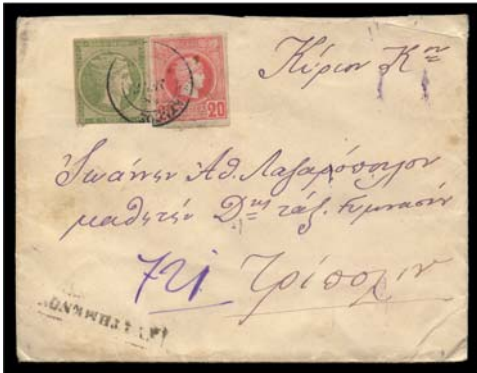 Κύριον Κον
20
Ἰωάννην Ἀθ. Λαζαρόπουλον
μαθητὴν Δης τάξ. Γυμνασίου
721 Τρίπολιν